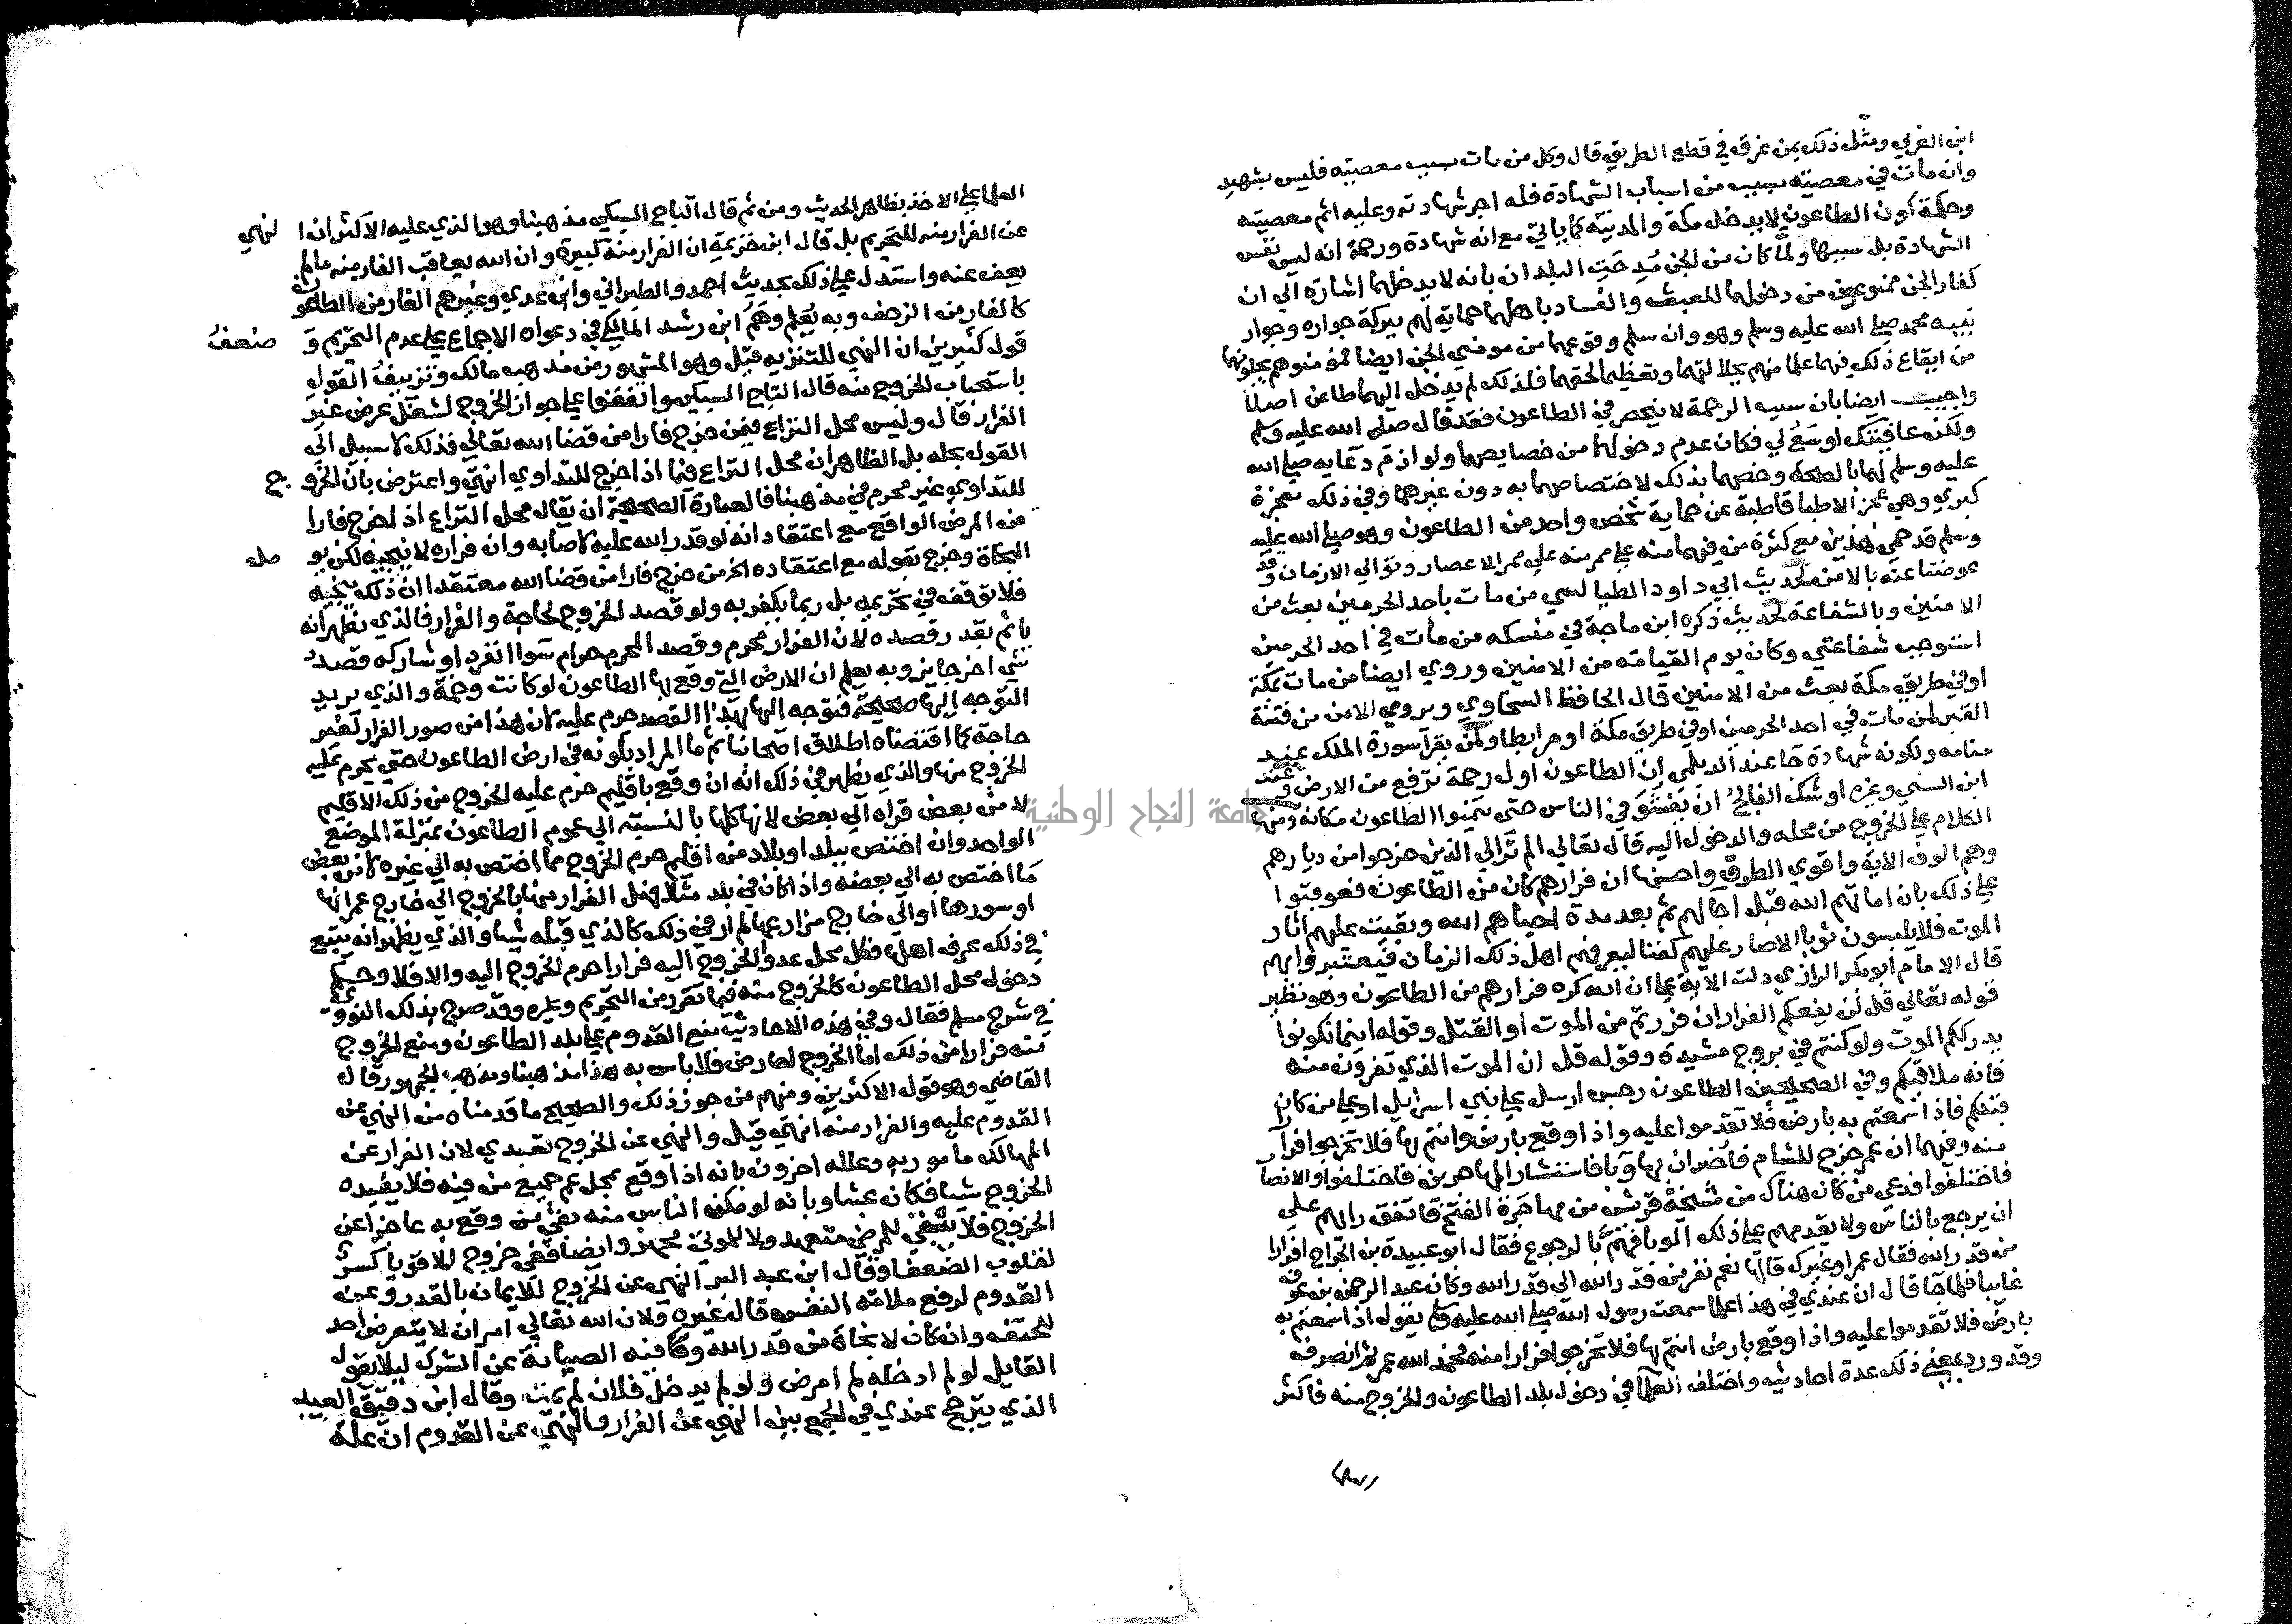 ابن الغربي ومثل ذلك بمن غرق في قطع الطريق قال وكل من مات بسبب معصيته فليس بشهيد
وان مات في معصيته بسبب من اسباب الشهادة فله اجر شهادته وعليه اثم معصيته
وحكمة كون الطاعون لا يدخل مكة والمدينة كما ياتي مع انه شهادة ورحمة انه ليس نفس
الشهادة بل سببها ولما كان من الجن مُدِحَتِ البلدان بانه لا يدخلهما اشارة الي ان
كفار الجن ممنوعون من دخولهما للعبث والفساد باهلهما حماية لهم ببركة جواره وجوار
نبيه محمد صلى الله عليه وسلم وهو وان سلم وقوعهما من مومني الجن ايضا فمؤمنوهم يجلونها
من ايقاع ذلك فيهما علما منهم بجلالتهما وتعظيما لحقهما فلذلك لم يدخل اليهما طاعن اصلا
واجيب ايضا بان سبب الرحمة لا ينحصر في الطاعون فقد قال صلى الله عليه وسلم
ولكن عافيتك اوسَعُ لي فكان عدم دخولهما من خصايصهما ولوازم دعايه صلى الله
عليه وسلم لهما بالصحة وخصهما بذلك لاختصاصهما به دون غيرهما وفي ذلك معجزة
كبري وهي عجز الاطبا قاطبة عن حماية شخص واحد من الطاعون وهو صلى الله عليه
وسلم قد حمي هذين مع كثرة من فيهما منه علي ممر الاعصار وتوالي الازمان وقد
عوضنا عنه بالامن لحديث ابي داود الطيالسي من مات باحد الحرمين بعث من
الامنين وبالشفاعة لحديث ذكره ابن ماجة في منسكه من مات في احد الحرمين
استوجب شفاعتي وكان يوم القيامة من الامنين وروي ايضا من مات بمكة
او في طريق مكة بعث من الامنين قال الحافظ السخاوي ويروي الامن من فتنة
القبر لمن مات في احد الحرمين او في طريق مكة او مرابطا ولمن يقرأ سورة الملك عند
منامه ولكونه شهادة جا عند الديلمي ان الطاعون اول رحمة ترفع من الارض وعند
ابن السني وغيره اوشك الفالجُ ان يَفْشُوَ في الناس حتى يتمنوا الطاعون مكانه ومنها
الكلام علي الخروج من محله والدخول اليه قال تعالي الم تر الي الذين خرجوا من ديارهم
وهم الوف الاية واقوي الطرق واحسنها ان فرارهم كان من الطاعون فعوقبوا
علي ذلك بان اماتهم الله قبل اجالهم ثم بعد مدة احياهم الله وبقيت عليهم اثار
الموت فلا يلبسون ثوبا الا صار عليهم كفنا ليعرفهم اهل ذلك الزمان فيعتبروا بهم
قال الامام ابو بكر الرازي دلت الاية علي ان الله كره فرارهم من الطاعون وهو نظير
قوله تعالي قل لن ينفعكم الفرار ان فررتم من الموت او القتل وقوله اينما تكونوا
يدرككم الموت ولو كنتم في بروج مشيدة وقوله قل ان الموت الذي تفرون منه
فانه ملاقيكم وفي الصحيحين الطاعون رجس ارسل علي بني اسرائيل او علي من كان
قبلكم فاذا سمعتم به بارض فلا تقدموا عليه واذا وقع بارض وانتم بها فلا تخرجوا فرارا
منه وفيهما ان عمر خرج للشام فأخبر ان بها وَبَا فاستشار المهاجرين فاختلفوا والانصار
فاختلفوا فدعي من كان هناك من مشيخة قريش من مهاجرة الفتح فاتفق رايهم علي
ان يرجع بالناس ولا يقدمهم علي ذلك الوبا فهمَّ بالرجوع فقال ابو عبيدة بن الجراح افرارا
من قدر الله فقال عمر او غيرك قالها نعم نفر من قدر الله الي قدر الله وكان عبد الرحمن بن عوف
غايبا فلما جا قال ان عندي في هذا علما سمعت رسول الله صلى الله عليه وسلم يقول اذا سمعتم به
بارض فلا تقدموا عليه واذا وقع بارض انتم بها فلا تخرجوا فرارا منه فحمد الله عمر ثم انصرف
وقد ورد بمعني ذلك عدة احاديث واختلف العلما في دخول بلد الطاعون والخروج منه فاكثر
العلما علي الاخذ بظاهر الحديث ومن ثم قال التاج السبكي مذهبنا وهو الذي عليه الاكثر ان النهي
عن الفرار منه للتحريم بل قال ابن خزيمة ان الفرار منه كبيرة وان الله يعاقب الفار منه مالم
يعف عنه واستدل علي ذلك بحديث احمد والطبراني وابن عدي وغيرهم الفار من الطاعون
كالفار من الزحف وبه يُعلم وَهَمُ ابن رشد المالكي في دعواه الاجماع علي عدم التحريم وَضعفُ
قول كثيرين ان النهي للتنزيه قيل وهو المشهور من مذهب مالك وتزييفُ القول
باستحباب الخروج منه قال التاج السبكي واتفقوا علي جواز الخروج لشغل عرض غير
الفرار قال وليس محل النزاع فيمن خرج فارا من قضا الله تعالي فذلك لا سبيل الي
القول بحله بل الظاهر ان محل النزاع فيما اذا خرج للتداوي انتهي واعترض بان الخروج
للتداوي غير محرم في مذهبنا فالعبارة الصحيحة ان يقال محل النزاع اذا خرج فارا
من المرض الواقع مع اعتقاد انه لو قدر الله عليه لاصابه وان فراره لا ينجيه لكن يوصله
النجاة وخرج بقوله مع اعتقاده الخ من خرج فارا من قضا الله معتقدا ان ذلك ينجيه
فلا توقف في تحريمه بل ربما يكفر به ولو قصد الخروج لحاجة والفرار فالذي يظهر انه
ياثم بقدر قصده لان الفرار محرم وقصد المحرم حرام سَوا انفرد او شاركه قصد
شي اخر جايز وبه يعلم ان الارض التي وقع بها الطاعون لو كانت وخمة والذي يريد
التوجه اليها صحيحة فتوجه اليها بهذا القصد حرم عليه لان هذا من صور الفرار لغير
حاجة كما اقتضاه اطلاق اصحابنا ثم ما المراد بكونه في ارض الطاعون حتى يحرم عليه
الخروج منها والذي يظهر في ذلك انه ان وقع باقليم حرم عليه الخروج من ذلك الاقليم
لا من بعض قراه الي بعض لانها كلها بالنسبة الي عموم الطاعون بمنزلة الموضع
الواحد وان اختص ببلد او بلاد من اقليم حرم الخروج مما اختص به الي غيره لا من بعض
مَا اختص به الي بعضه واذا كان في بلد مثلا فهل الفرار منها بالخروج الي خارج عمرانها
او سورها او الي خارج مزارعها لم ار في ذلك كالذي قبله شيا والذي يظهر انه يتبع
في ذلك عرف اهلها فكل محل عدوا الخروج اليه فرارا حرم الخروج اليه والا فلا وحكم
دخول محل الطاعون كالخروج منه فيما تقرر من التحريم وغيره وقد صرح بذلك النووي
في شرح مسلم فقال وفي هذه الاحاديث منع القدوم علي بلد الطاعون ومنع الخروج
منه فرارا من ذلك اما الخروج لعارض فلا باس به هذا مذهبنا ومذهب الجمهور قال
القاضي وهو قول الاكثرين ومنهم من جوز ذلك والصحيح ما قدمناه من النهي عن
القدوم عليه والفرار منه انتهي قيل والنهي عن الخروج تعبدي لان الفرار عن
المهالك مامور به وعلله اخرون بانه اذا وقع بمحل عم جميع من فيه فلا يفيده
الخروج شيا فكان عبثا وبانه لو مكن الناس منه بقي من وقع به عاجزا عن
الخروج فلا يبقي للمرضي متعهد ولا للموتي مجهز وايضا ففي خروج الاقويا كسر
لقلوب الضعفا وقال ابن عبد البر النهي عن الخروج للايمان بالقدر وعن
القدوم لرفع ملامة النفس قال غيره ولان الله تعالي امر ان لا يتعرض احد
للحتف وان كان لا نجاة من قدر الله وفيه الصيانة عن الشرك ليلا يقول
القايل لو لم ادخله لم امرض ولو لم يدخل فلان لم يمت وقال ابن دقيق العيد
الذي يترجح عندي في الجمع بين النهي عن الفرار والنهي عن القدوم ان علة
جامعة النجاح الوطنية